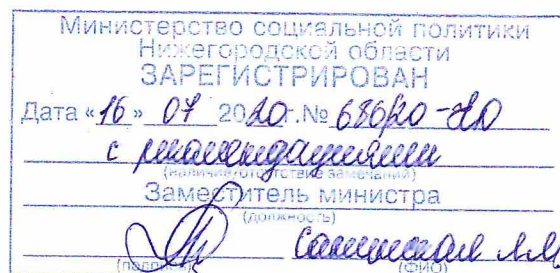 Министерство социальной политики
Нижегородской области
ЗАРЕГИСТРИРОВАН
Дата «16» 07 2020 г. №
с рекомендациями
(наличие/отсутствие замечаний)
Заместитель министра
(должность)
(подпись) (ФИО)